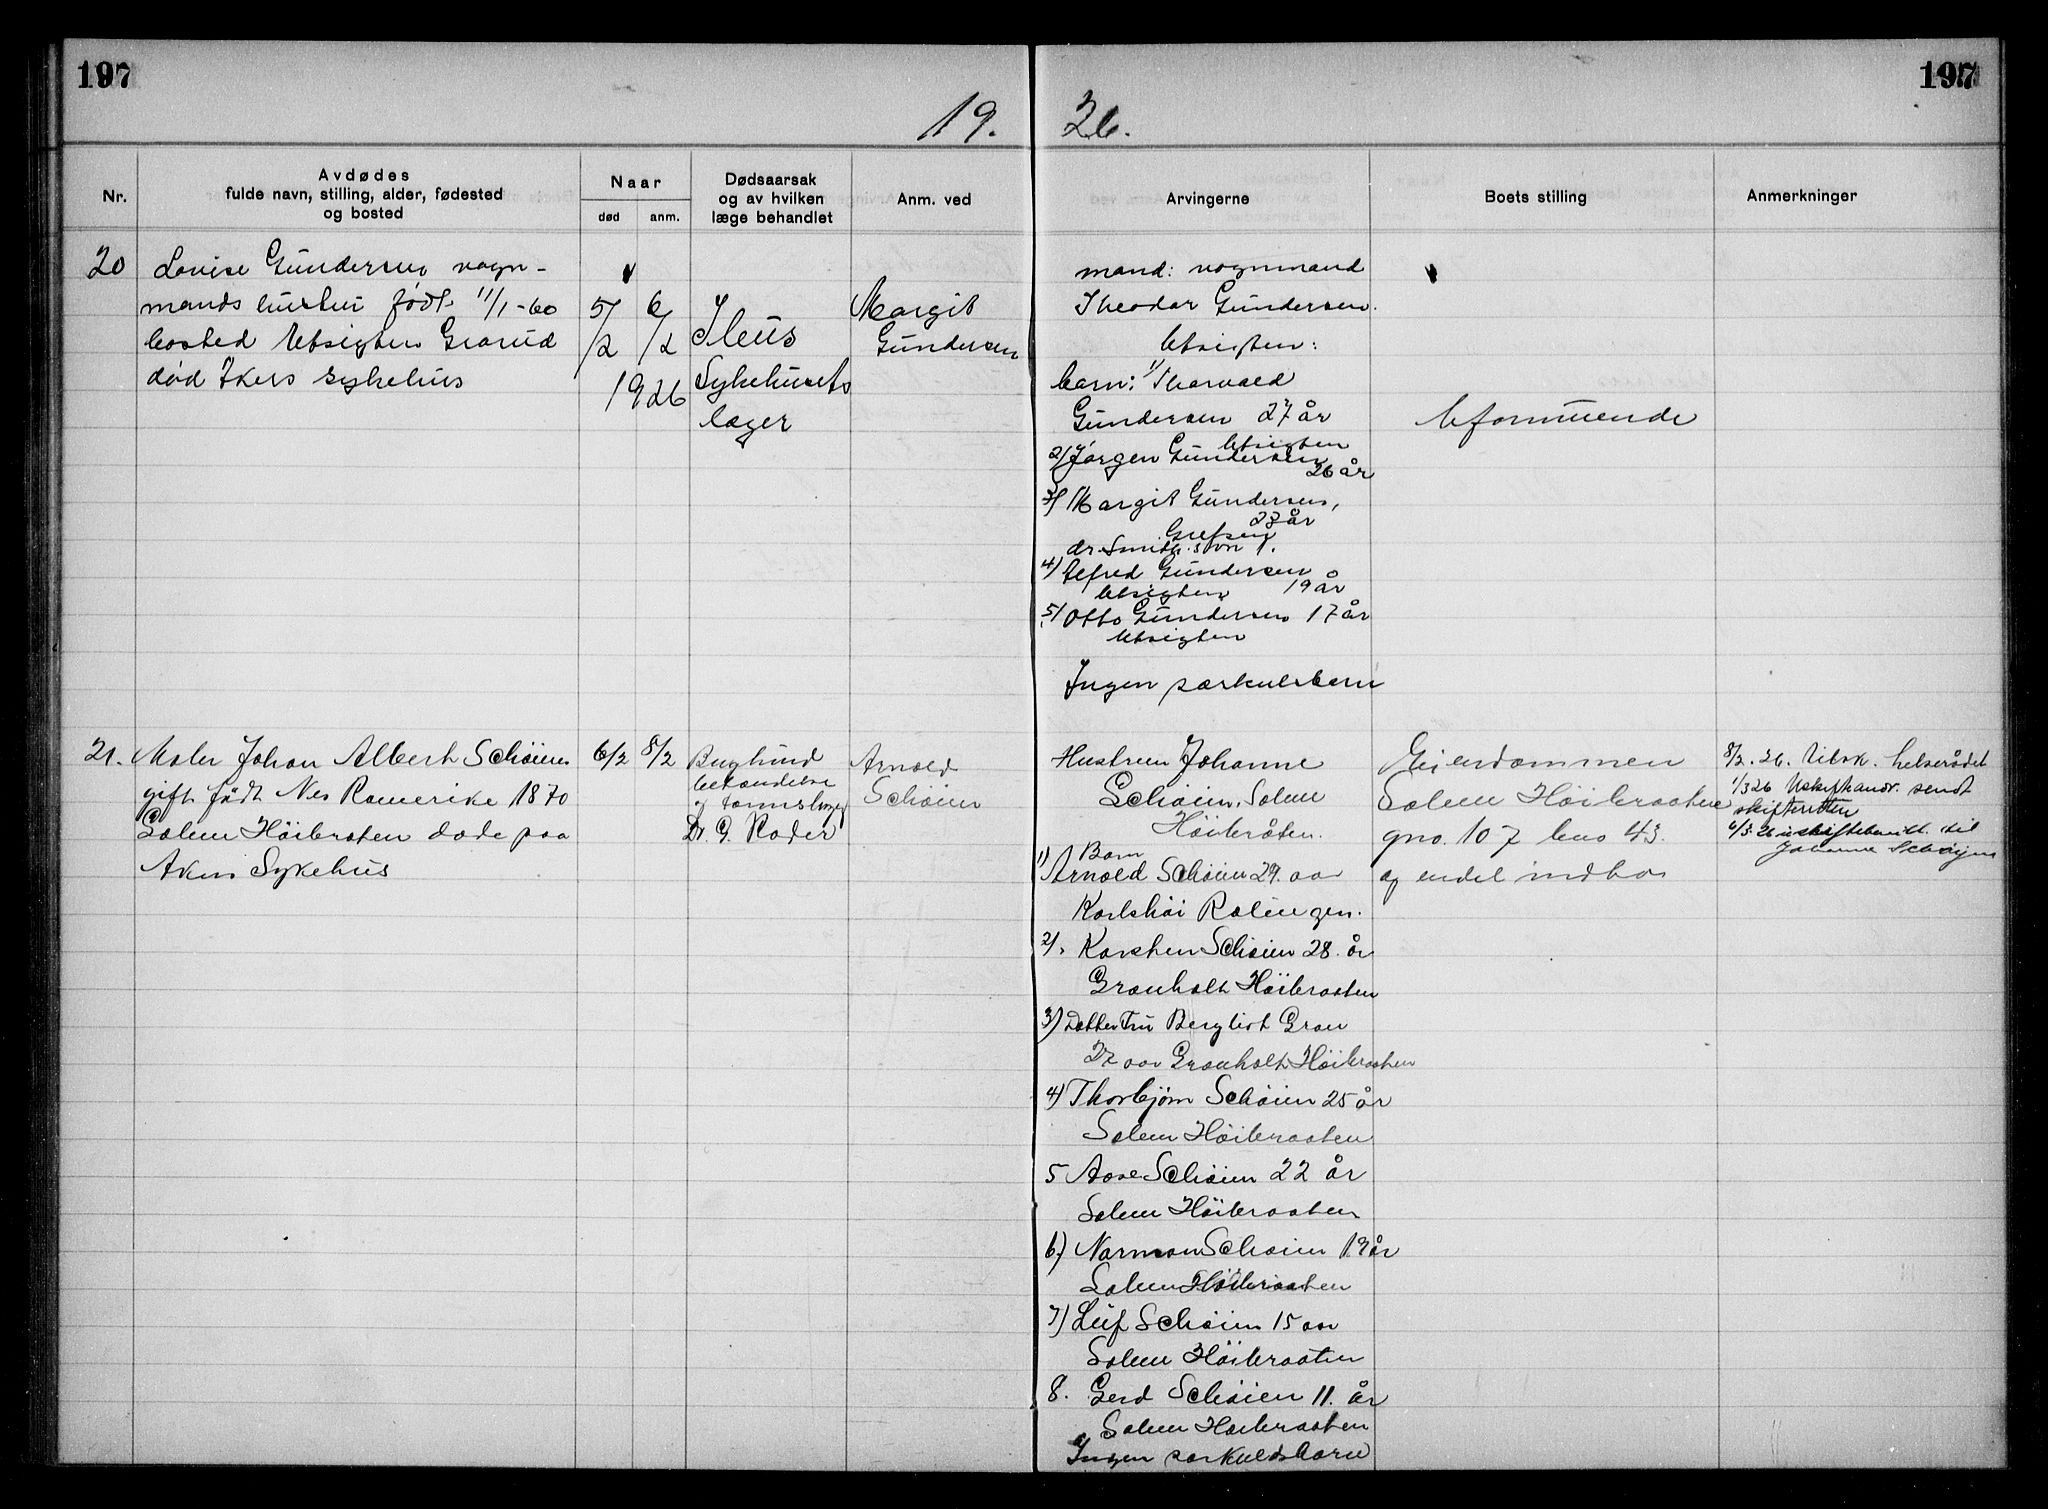 197
197
19. 26.
Nr.
Avdødes
fulde navn, stilling, alder, fødested
og bosted
Naar
død
anm.
Dødsaarsak
og av hvilken
læge behandlet
Anm. ved
Arvingerne
Boets stilling
Anmerkninger
20
Lovise Gundersen vogn-
mands hustru født 11/1-60
bosted Utsigten Grorud
død Akers sykehus
5/2 6/2
1926
Ileus
Sykehusets
læger
Margit
Gundersen
mand: vognmand
Theodor Gundersen.
Utsigten:
barn: 1/ Thorvald
Gundersen 27 år
Utsigten
2/ Jørgen Gundersen
26 år
3/ Margit Gundersen,
23 år
Grefsen
dr. Smiths vei 1.
4) Alfred Gundersen
Utsigten 19 år
5/ Otto Gundersen 17 år
Utsigten
Ingen særkulsbarn
Uformuende
21.
Maler Johan Albert Schøien
gift født Nes Romerike 1870
Solem Høibråten døde paa
Akers Sykehus
6/2 8/2
Bughind
betændelse
og tarmslyng
Dr. G. Roder
Arnold
Schøien
Hustruen Johanne
Schøien. Solem
Høibråten.
Barn
1) Arnold Schøien 29. aar
Karlshøi Rælingen.
2). Karsten Schøien 28. år
Granholt Høibraaten
3) Datter Fru Bergliot Gran
27 aar Granholt Høibraaten
4) Thorbjørn Schøien 25 år
Solem Høibraaten
5 Aase Schøien 22 år
Solem Høibraaten
6.) Norman Schøien 19 år
Solem Høibraaten
7) Leif Schøien 15 aar
Solem Høibraaten
8. Gerd Schøien 11. år
Solem Høibraaten
Ingen særkuldsbarn
Eiendommen
Solem Høibraaten
gno. 107 bno 43.
og endel indbo
8/2. 26. Utsk. helserådet
1/3 26 sendt
skifteretten
6/3. 26 skiftebevilt. til
Johanne Schøyen